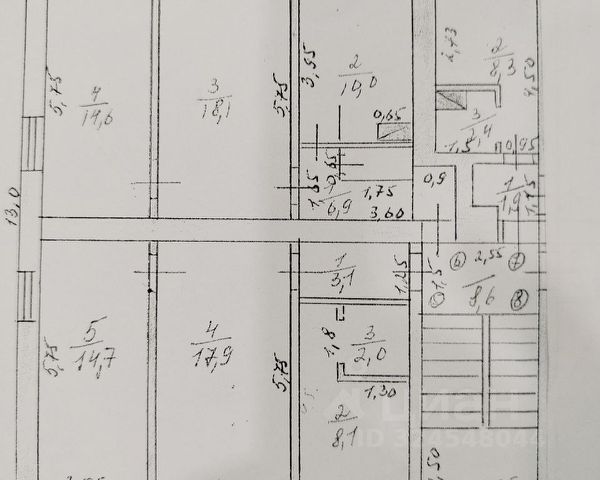 5,75
4
14,6
3
18,1
5,75
3,55
2
10,0
0,65
2
8,3
4,50
3
2,4
1,5
0,95
13,0
0,65
1,65
1
6,9
1,75
3,60
0,9
1
1,9
1,15
1
3,1
1,25
1,5
6
2,55
7
8,6
8
5
14,7
5,75
4
17,9
5,75
1,8
3
2,0
1,30
2
8,1
ID 324548044
,50